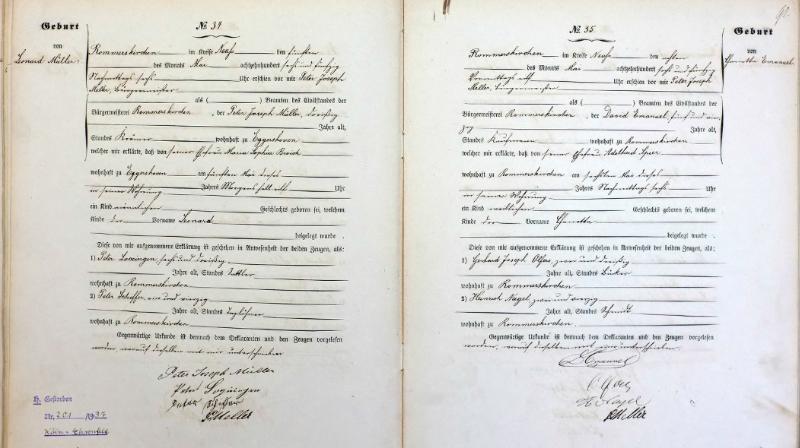 Geburt
von
Leonard Müller.
№ 34
Rommerskirchen im Kreise Neuß den fünften
des Monats Mai achtzehnhundert sechs und fünfzig
Nachmittags sechs Uhr erschien vor mir Peter Joseph
Meller, Bürgermeister
als ( ) Beamten des Civilstandes der
Bürgermeisterei Rommerskirchen, der Peter Joseph Müller, dreißig
Jahre alt,
Standes Krämer wohnhaft zu Eggershoven
welcher mir erklärte, daß von seiner Ehefrau Maria Sophia Broich
wohnhaft zu Eggershoven am fünften Mai dieses
Jahres Morgens halb acht Uhr
in seiner Wohnung
ein Kind männlichen Geschlechts geboren sei, welchem
Kinde der Vorname Leonard
beigelegt wurde.
Diese von mir aufgenommene Erklärung ist geschehen in Anwesenheit der beiden Zeugen, als:
1) Peter sechs und dreißig
Jahre alt, Standes Sattler
wohnhaft zu Rommerskirchen
2) Peter Schaffen ein und vierzig
Jahre alt, Standes Taglöhner
wohnhaft zu Rommerskirchen
Gegenwärtige Urkunde ist demnach dem Deklaranten und den Zeugen vorgelesen
worden, worauf dieselben mit mir unterschrieben
Peter Joseph Müller
Peter
Peter Schaffen
PJMeller
H. Gestorben
Nr. 201 1937
Köln-Ehrenfeld
90.
Geburt
von
Emanuel
№ 35
Rommerskirchen im Kreise Neuß den achten
des Monats Mai achtzehnhundert sechs und fünfzig
Vormittags acht Uhr erschien vor mir Peter Joseph
Meller, Bürgermeister
als ( ) Beamten des Civilstandes der
Bürgermeisterei Rommerskirchen, der David Emanuel, fünf und
Jahre alt,
Standes Kaufmann wohnhaft zu Rommerskirchen
welcher mir erklärte, daß von seiner Ehefrau Adelheid Spier
wohnhaft zu Rommerskirchen am sechsten Mai dieses
Jahres Nachmittags sechs Uhr
in seiner Wohnung
ein Kind weiblichen Geschlechts geboren sei, welchem
Kinde der Vorname
beigelegt wurde.
Diese von mir aufgenommene Erklärung ist geschehen in Anwesenheit der beiden Zeugen, als:
1) Gerhard Joseph zwei und dreißig
Jahre alt, Standes Bäcker
wohnhaft zu Rommerskirchen
2) Heinrich Nagel zwei und vierzig
Jahre alt, Standes Schmidt
wohnhaft zu Rommerskirchen.
Gegenwärtige Urkunde ist demnach dem Deklaranten und den Zeugen vorgelesen
worden, worauf dieselben mit mir unterschrieben
D Emanuel
H Nagel
PJMeller